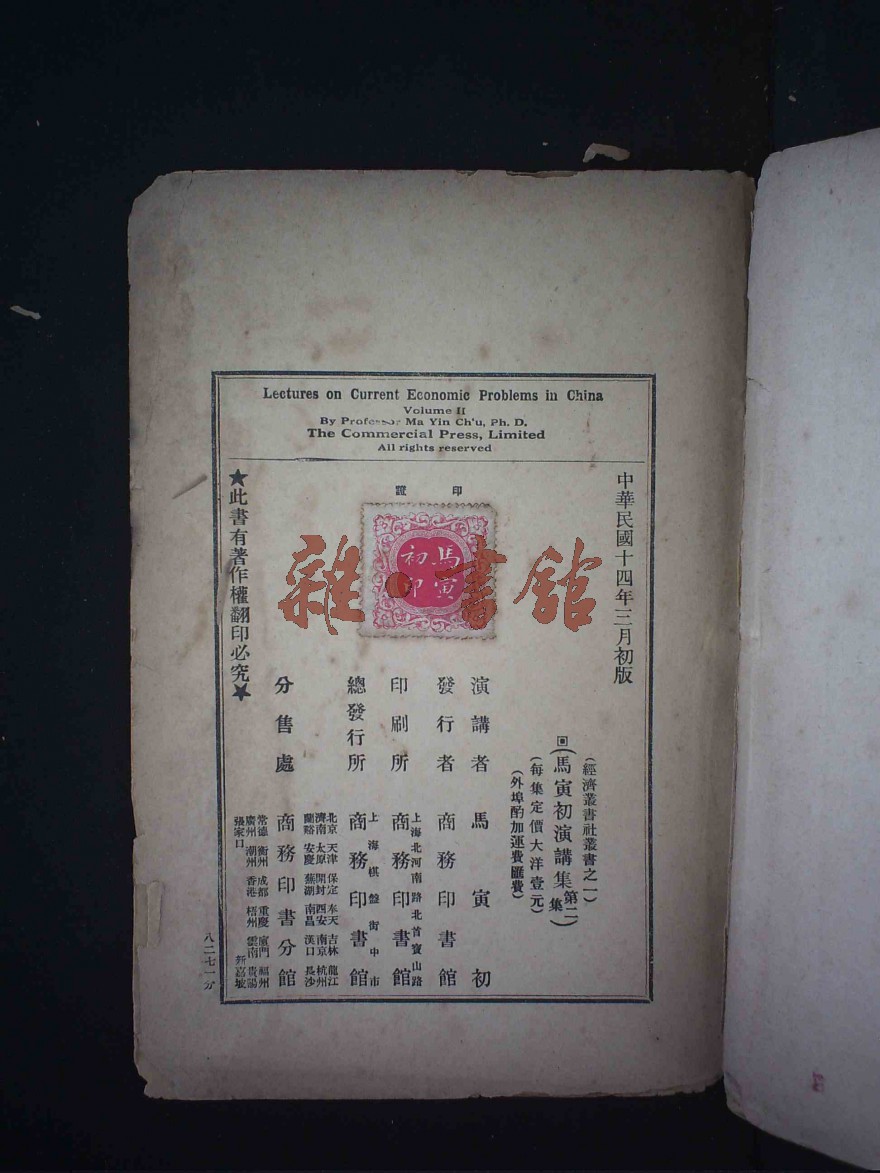 Lectures on Current Economic Problems in China
Volume II
By Professor Ma Yin Ch'u, Ph. D.
The Commercial Press, Limited
All rights reserved
中華民國十四年三月初版
(經濟叢書社叢書之一)
(馬寅初演講集第二集)
(每集定價大洋壹元)
(外埠酌加運費匯費)
演講者 馬寅初
發行者 商務印書館
印刷所 上海北河南路北首寶山路 商務印書館
總發行所 上海棋盤街中市 商務印書館
分售處 北京 天津 保定 奉天 吉林 龍江
濟南 太原 開封 西安 南京 杭州
蘭谿 安慶 蕪湖 南昌 漢口 長沙
商務印書分館
常德 衡州 成都 重慶 廈門 福州
廣州 潮州 香港 梧州 雲南 貴陽
張家口 新嘉坡
印證
馬寅初印
★此書有著作權翻印必究★
八二七一分
雜·書館